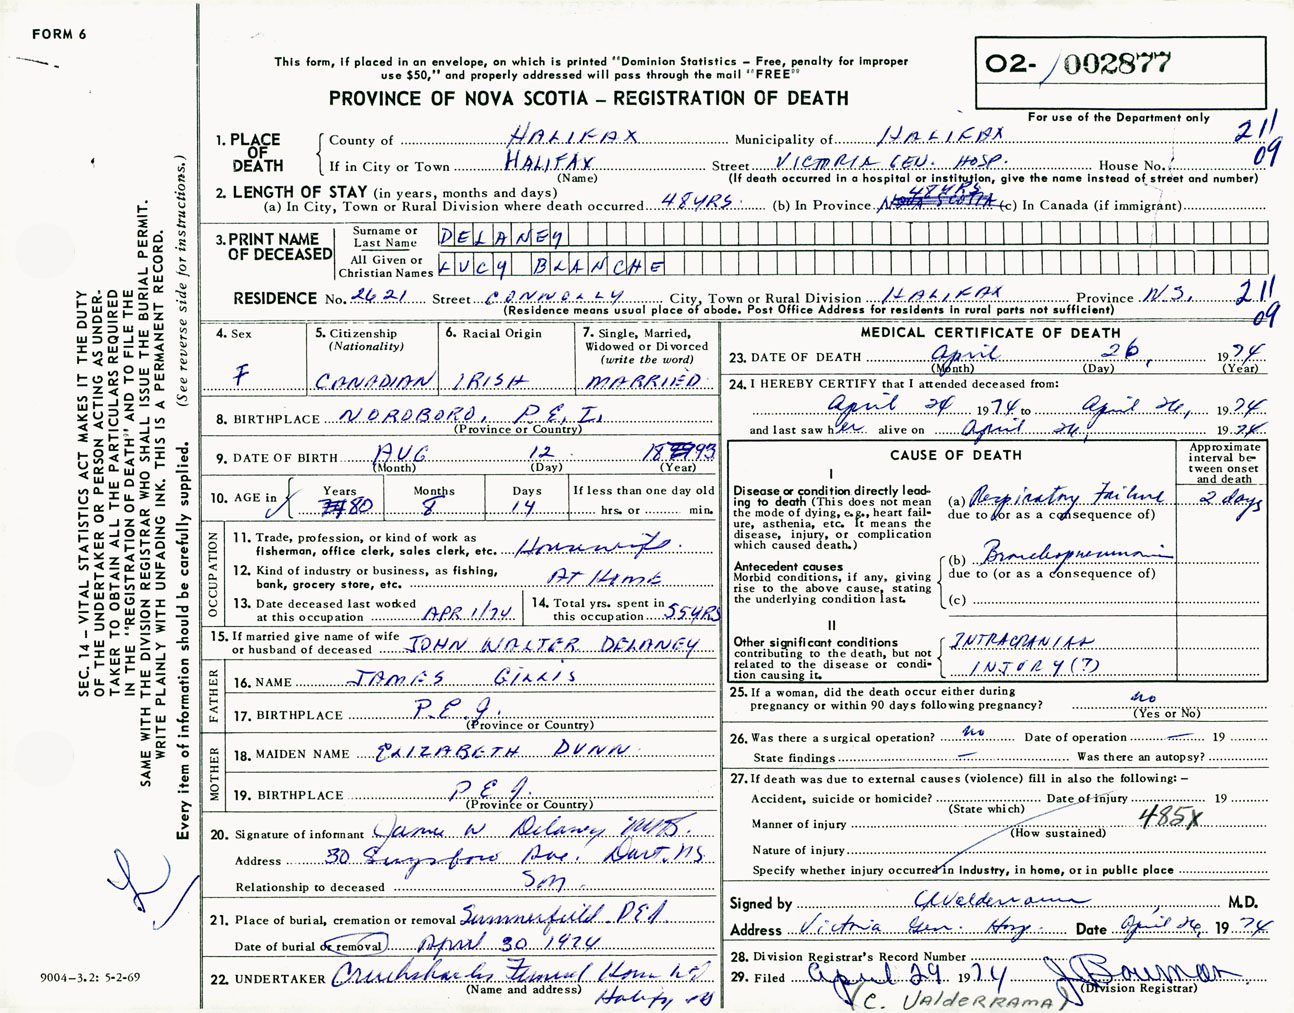 FORM 6
This form, if placed in an envelope, on which is printed "Dominion Statistics – Free, penalty for improper
use $50," and properly addressed will pass through the mail "FREE"
PROVINCE OF NOVA SCOTIA – REGISTRATION OF DEATH
02- 002877
For use of the Department only
211
09
1. PLACE OF DEATH
County of HALIFAX Municipality of HALIFAX
If in City or Town HALIFAX Street VICTORIA GEN. HOSP. House No.
(Name) (If death occurred in a hospital or institution, give the name instead of street and number)
2. LENGTH OF STAY (in years, months and days)
48 YRS
(a) In City, Town or Rural Division where death occurred 48 YRS (b) In Province NOVA SCOTIA (c) In Canada (if immigrant)
3. PRINT NAME OF DECEASED
Surname or Last Name DELANEY
All Given or Christian Names LUCY BLANCHE
RESIDENCE No. 2621 Street CONNOLLY City, Town or Rural Division HALIFAX Province N.S.
(Residence means usual place of abode. Post Office Address for residents in rural parts not sufficient)
211
09
4. Sex F
5. Citizenship (Nationality) CANADIAN
6. Racial Origin IRISH
7. Single, Married, Widowed or Divorced (write the word) MARRIED
8. BIRTHPLACE NORBORO, P.E.I.
(Province or Country)
9. DATE OF BIRTH AUG 12 1893
(Month) (Day) (Year)
10. AGE in Years 80 Months 8 Days 14 If less than one day old
hrs. or min.
OCCUPATION
11. Trade, profession, or kind of work as
fisherman, office clerk, sales clerk, etc. Housewife
12. Kind of industry or business, as fishing,
bank, grocery store, etc. AT HOME
13. Date deceased last worked
at this occupation APR 1/74
14. Total yrs. spent in
this occupation 55 YRS
15. If married give name of wife
or husband of deceased JOHN WALTER DELANEY
FATHER
16. NAME JAMES GILLIS
17. BIRTHPLACE P.E.I.
(Province or Country)
MOTHER
18. MAIDEN NAME ELIZABETH DUNN
19. BIRTHPLACE P.E.I.
(Province or Country)
20. Signature of informant James W Delaney
Address 30 Ave. Dart. NS
Relationship to deceased Son
21. Place of burial, cremation or removal Summerfield P.E.I.
Date of burial or removal April 30 1974
22. UNDERTAKER Cruikshanks Funeral Home Ltd
(Name and address) Halifax NS
MEDICAL CERTIFICATE OF DEATH
23. DATE OF DEATH April 26, 1974
(Month) (Day) (Year)
24. I HEREBY CERTIFY that I attended deceased from:
April 24 1974 to April 26, 1974
and last saw her alive on April 26, 1974
CAUSE OF DEATH
Approximate interval between onset and death
I
Disease or condition directly lead-
ing to death (This does not mean
the mode of dying, e.g., heart fail-
ure, asthenia, etc. It means the
disease, injury, or complication
which caused death.)
(a) Respiratory Failure 2 days
due to (or as a consequence of)
Antecedent causes
Morbid conditions, if any, giving
rise to the above cause, stating
the underlying condition last.
(b) Bronchopneumonia
due to (or as a consequence of)
(c)
II
Other significant conditions
contributing to the death, but not
related to the disease or condi-
tion causing it.
INTRACRANIAL
INJURY (?)
25. If a woman, did the death occur either during
pregnancy or within 90 days following pregnancy? no
(Yes or No)
26. Was there a surgical operation? no Date of operation — 19
State findings — Was there an autopsy?
27. If death was due to external causes (violence) fill in also the following: –
Accident, suicide or homicide? Date of injury 19
(State which)
Manner of injury 485X
(How sustained)
Nature of injury
Specify whether injury occurred in industry, in home, or in public place
Signed by C Valderrama, M.D.
Address Victoria Gen. Hosp. Date April 26, 1974
28. Division Registrar's Record Number
29. Filed April 29 1974 J Bowman
(Division Registrar)
(C. VALDERRAMA)
SEC. 14 – VITAL STATISTICS ACT MAKES IT THE DUTY
OF THE UNDERTAKER OR PERSON ACTING AS UNDER-
TAKER TO OBTAIN ALL THE PARTICULARS REQUIRED
IN THE "REGISTRATION OF DEATH" AND TO FILE THE
SAME WITH THE DIVISION REGISTRAR WHO SHALL ISSUE THE BURIAL PERMIT.
WRITE PLAINLY WITH UNFADING INK. THIS IS A PERMANENT RECORD.
Every item of information should be carefully supplied. (See reverse side for instructions.)
9004–3.2: 5-2-69